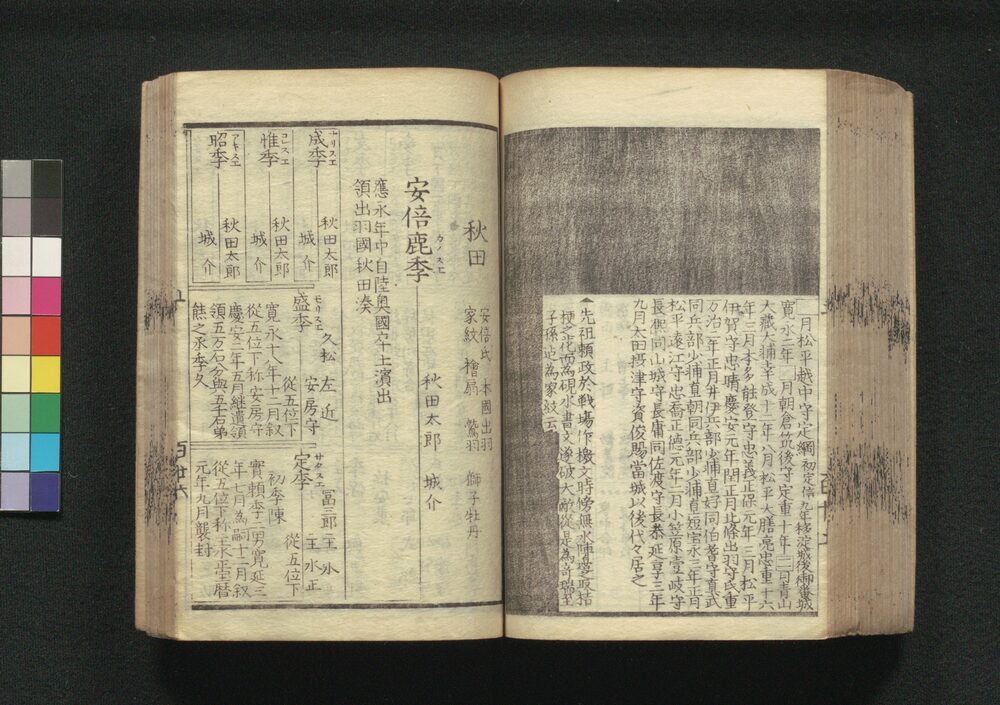 月松平越中守定綱初定信九年移淀城後御番城
寛永二年 月朝倉筑後守定重十年二月青山
大藏大輔幸成十二年八月松平大膳亮忠重十六
年三月本多能登守忠義正保元年三月松平
伊賀守忠晴慶安元年閏正月北條出羽守氏重
万治二年正月井伊兵部少輔直好同伯耆守直武
同兵部少輔直朝同兵部少輔直矩宝永三年正月
松平遠江守忠喬正德元年二月小笠原壹岐守
長凞同山城守長庸同佐渡守長恭延享三年
九月太田摂津守資俊賜當城以後代々居之
▲先祖頼政於戦場作檄文時傍無水陣邊取桔
梗之花而為硯水書文遂破大敵從是為奇瑞至
子孫迠為家紋云
秋田
安倍氏 本國出羽
家紋 檜扇 鷲羽 獅子牡丹
安倍鹿季
カノスエ
秋田太郎 城介
應永年中自陸奥國卒土濱出
領出羽國秋田湊
成季
ナリスエ
秋田太郎
城介
惟季
コレスエ
秋田太郎
城介
昭季
アキスエ
秋田太郎
城介
盛季
モリスエ
久松 左近
安房守
從五位下
寛永十八年十二月叙
從五位下称安房守
慶安二年五月継遺領
領五万石分與五千石弟
熊之丞季久
定季
サタスエ
冨三郎 主水
主水正
從五位下
初季陳
實頼季二男寛延三
年七月為嗣十二月叙
從五位下称主水正宝暦
元年九月襲封
百廿六